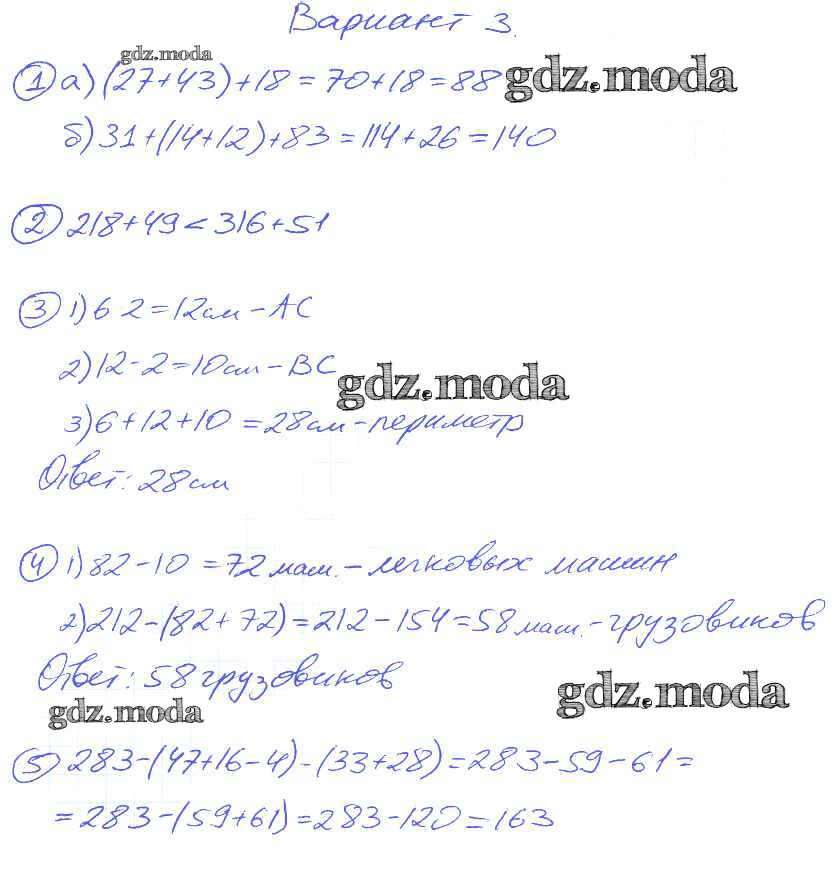 Вариант 3.
gdz.moda
1 а) (27+43)+18=70+18=88 gdz.moda
б) 31+(14+12)+83=114+26=140
2 218+49<316+51
3 1) 6 2=12см-АС
2) 12-2=10см-ВС
gdz.moda
3) 6+12+10=28см-периметр
Ответ: 28см
4 1) 82-10=72маш.-легковых машин
2) 212-(82+72)=212-154=58маш.-грузовиков
Ответ: 58 грузовиков
gdz.moda
gdz.moda
5 283-(47+16-4)-(33+28)=283-59-61=
=283-(59+61)=283-120=163